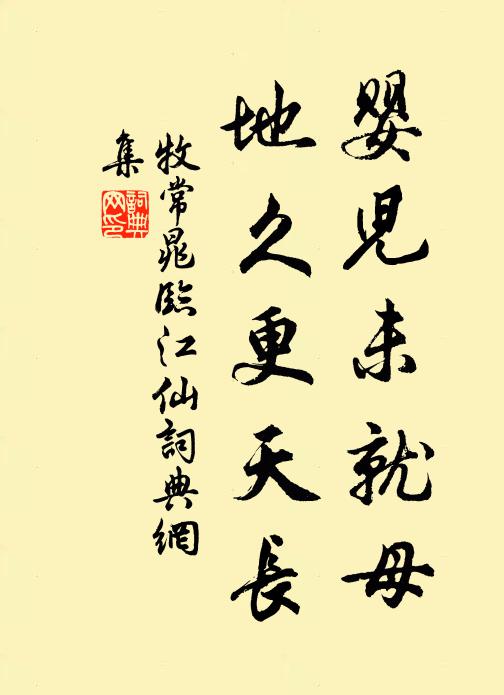 嬰児未就母
地久更天長
牧常晁臨江仙詞典網
集
詞典
网印